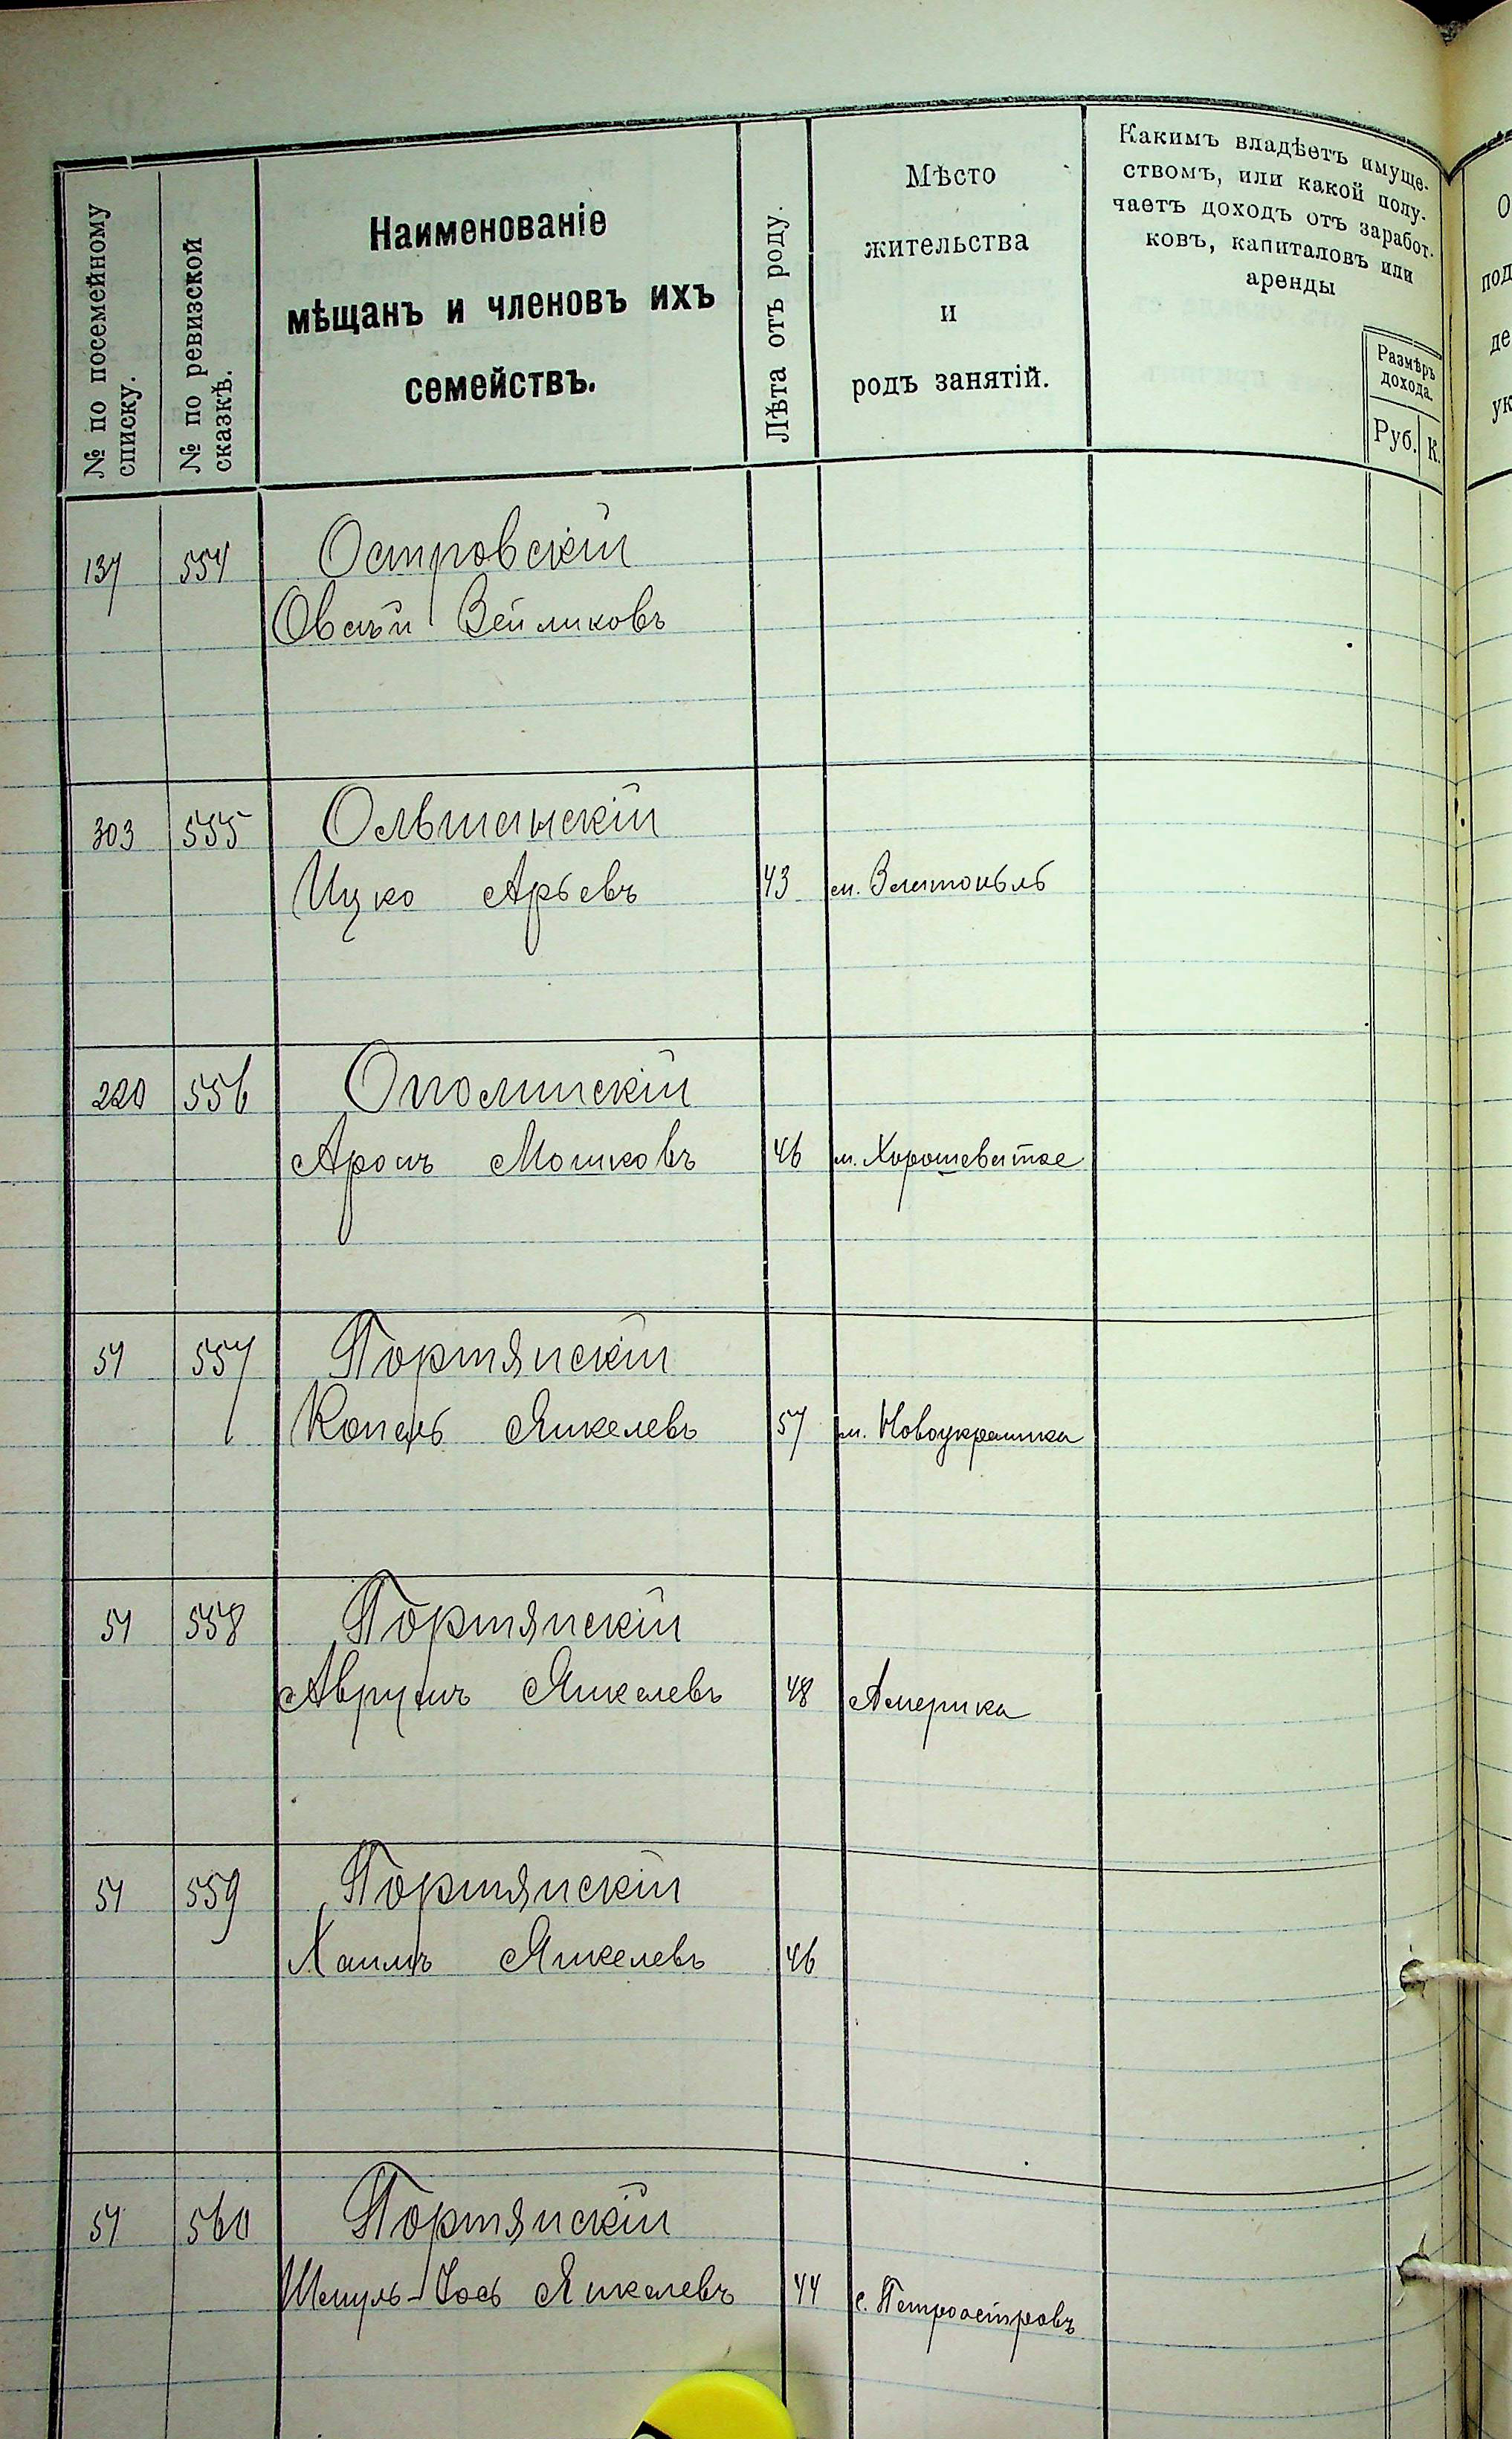 № по посемейному
списку.
№ по ревизской
сказкѣ.
Наименованіе
мѣщанъ и членовъ ихъ
семействъ.
Лѣта отъ роду.
Мѣсто
жительства
и
родъ занятій.
Какимъ владѣетъ имуще-
ствомъ, или какой полу-
чаетъ доходъ отъ заработ-
ковъ, капиталовъ или
аренды
Размѣръ
дохода.
Руб. К.
137 554 Островскій
Овсѣй Вейликовъ
303 555 Ольшанскій
Ицко Арьевъ 43 м. Златополь
220 556 Ополинскій
Аронъ Мошковъ 46 м. Хорошеватое
51 557 Портянскій
Копель Янкелевъ 57 м. Новоукраинка
51 558 Портянскій
Аврумъ Янкелевъ 48 Америка
51 559 Портянскій
Хаимъ Янкелевъ 46
51 560 Портянскій
Шмуль-Іось Янкелевъ 44 с. Петроостровъ